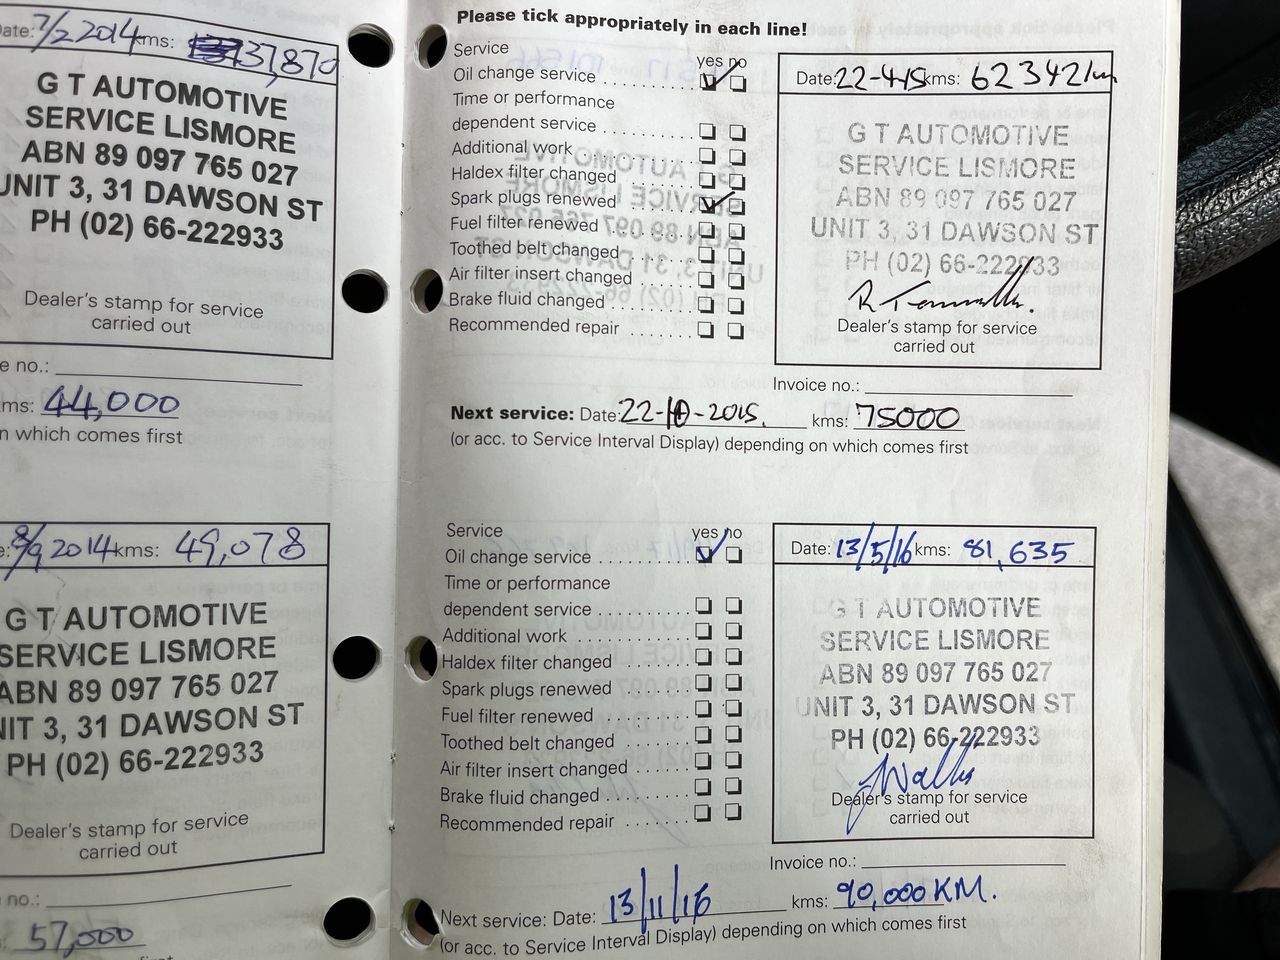 Date: 7/2 2014 kms: 37,870
G T AUTOMOTIVE
SERVICE LISMORE
ABN 89 097 765 027
UNIT 3, 31 DAWSON ST
PH (02) 66-222933
Dealer's stamp for service
carried out
e no.:
kms: 44,000
n which comes first
e: 8/9 2014 kms: 49,078
G T AUTOMOTIVE
SERVICE LISMORE
ABN 89 097 765 027
NIT 3, 31 DAWSON ST
PH (02) 66-222933
Dealer's stamp for service
carried out
no.:
57,000
Please tick appropriately in each line!
Service yes no
Oil change service
Time or performance
dependent service
Additional work
Haldex filter changed
Spark plugs renewed
Fuel filter renewed
Toothed belt changed
Air filter insert changed
Brake fluid changed
Recommended repair
Date: 22-4-15 kms: 62342km
G T AUTOMOTIVE
SERVICE LISMORE
ABN 89 097 765 027
UNIT 3, 31 DAWSON ST
PH (02) 66-222933
Dealer's stamp for service
carried out
Invoice no.:
Next service: Date: 22-10-2015. kms: 75000
(or acc. to Service Interval Display) depending on which comes first
Service yes no
Oil change service
Time or performance
dependent service
Additional work
Haldex filter changed
Spark plugs renewed
Fuel filter renewed
Toothed belt changed
Air filter insert changed
Brake fluid changed
Recommended repair
Date: 13/5/16 kms: 81,635
G T AUTOMOTIVE
SERVICE LISMORE
ABN 89 097 765 027
UNIT 3, 31 DAWSON ST
PH (02) 66-222933
Dealer's stamp for service
carried out
Invoice no.:
Next service: Date: 13/11/16 kms: 90,000 KM.
(or acc. to Service Interval Display) depending on which comes first